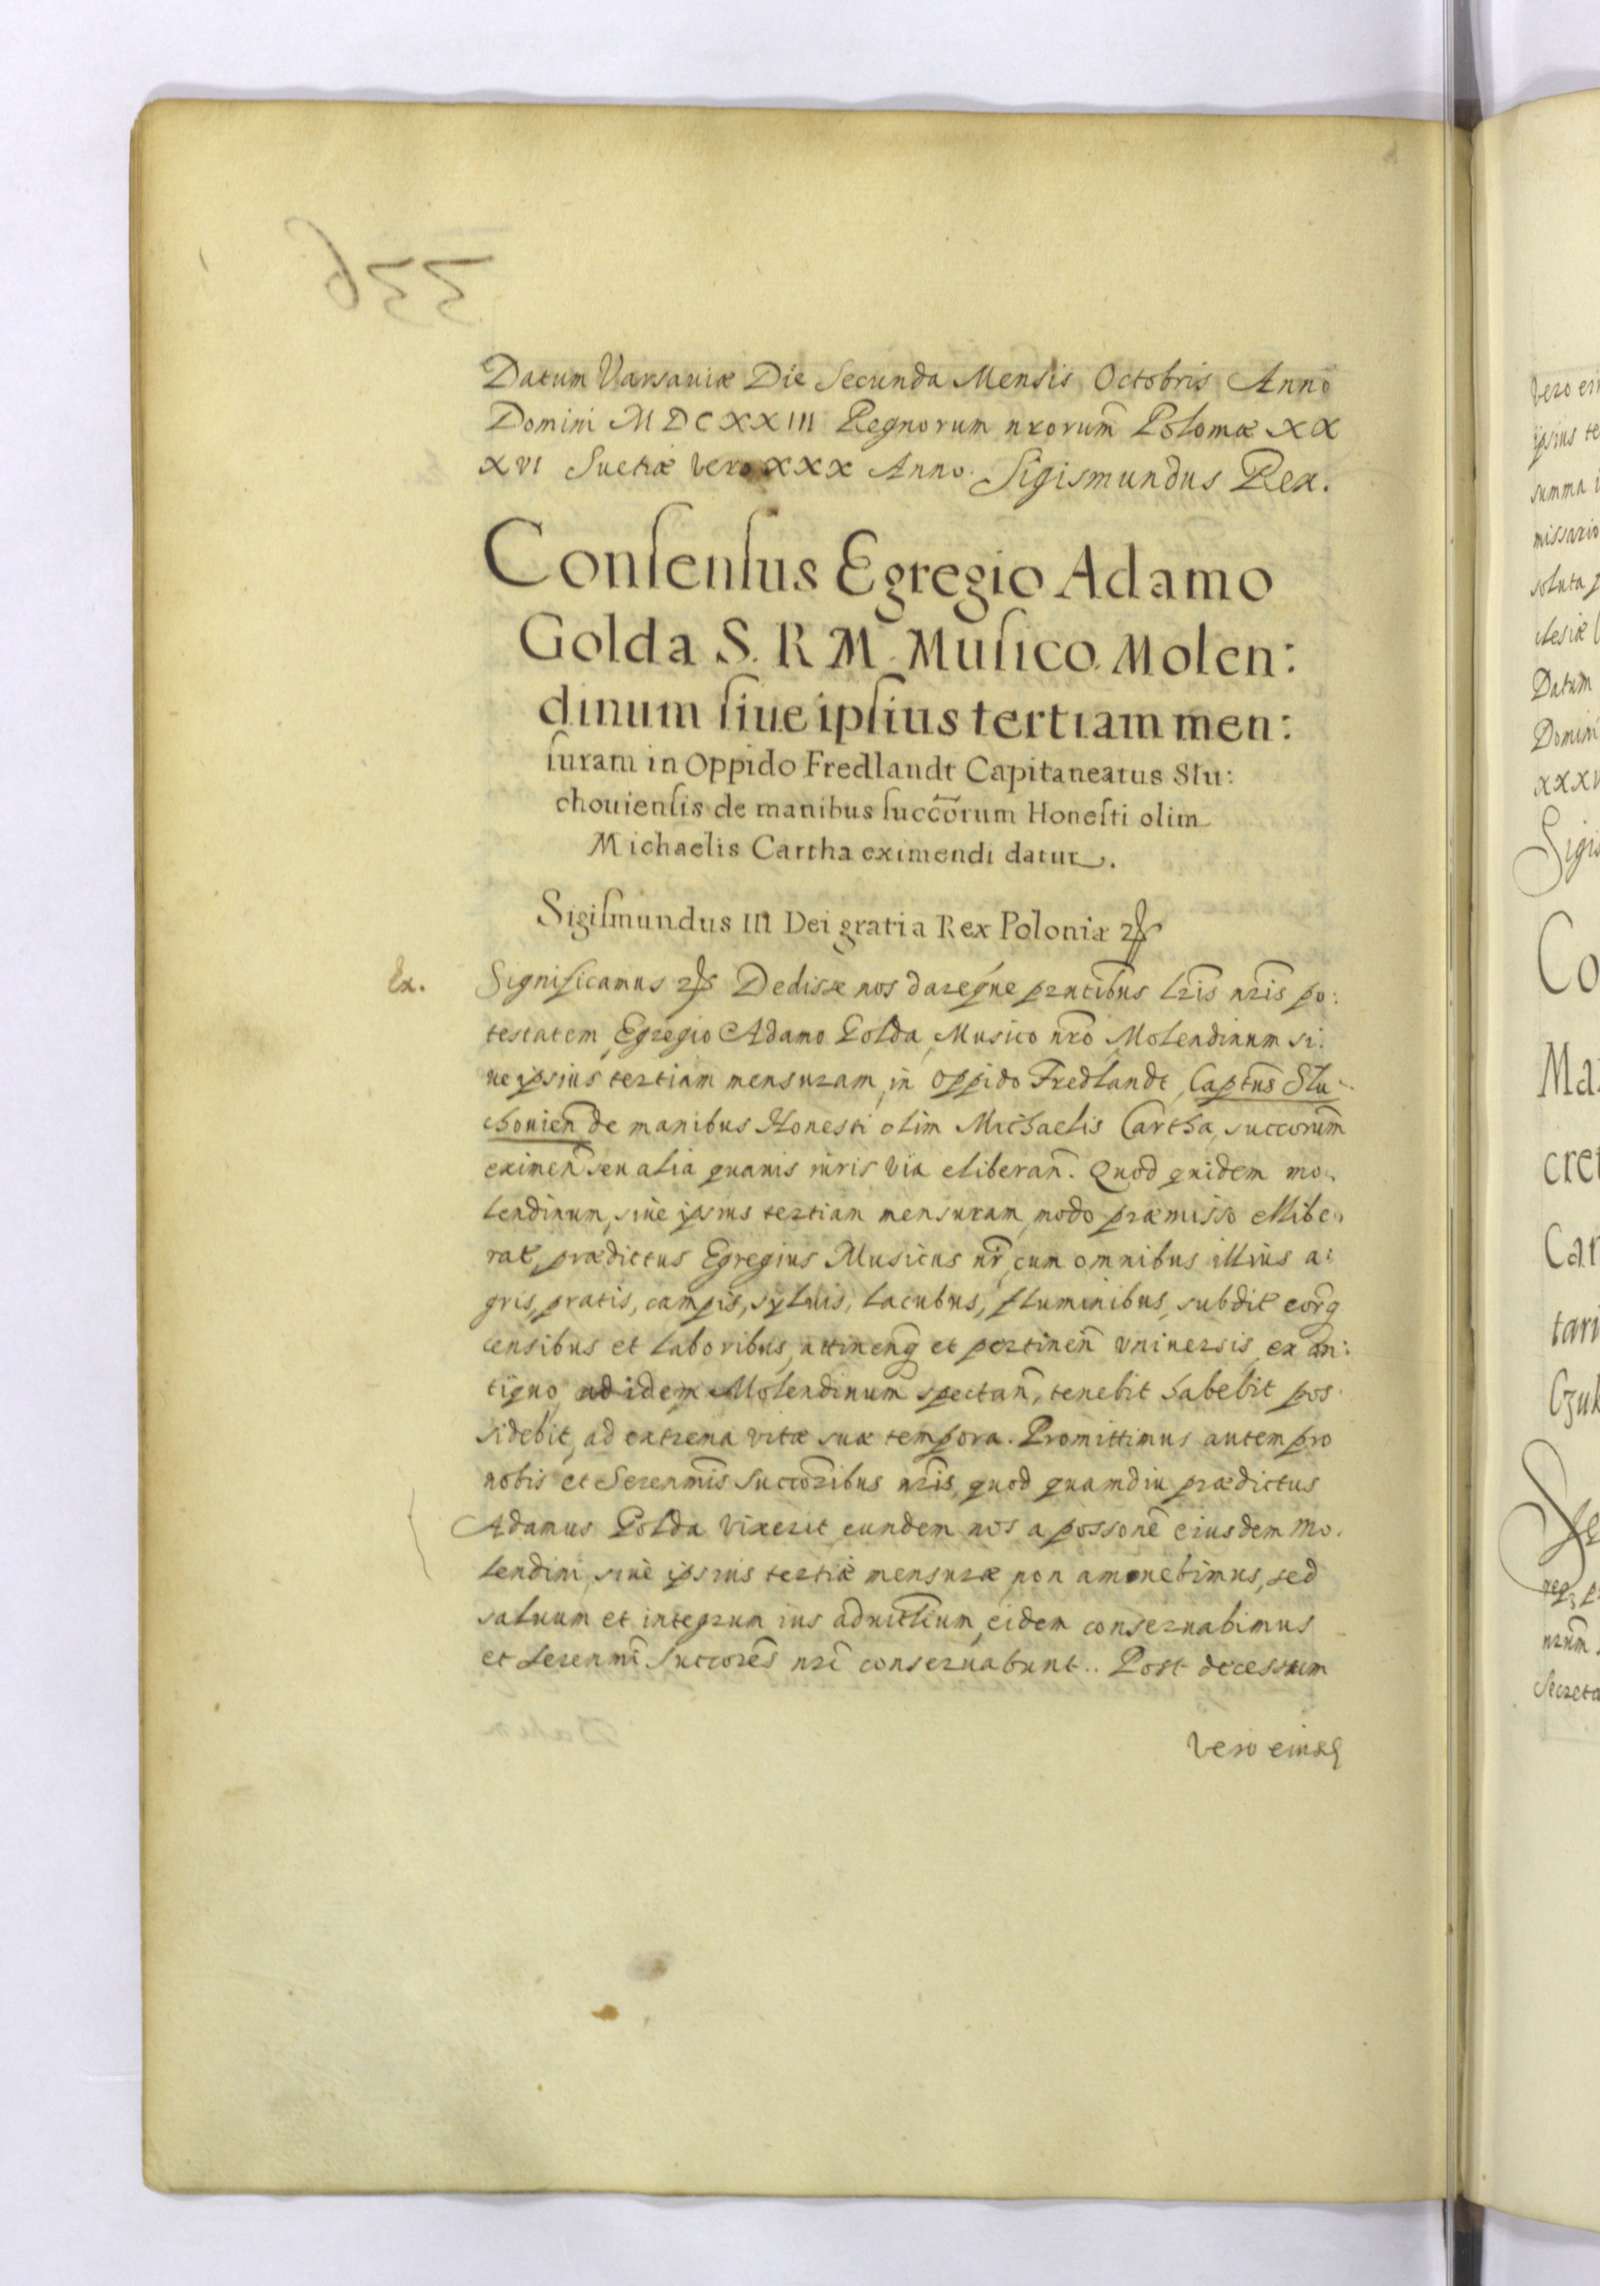 Datum Varsauiæ Die Secunda Mensis Octobris Anno
Domini MDCXXIII Regnorum nrorum Poloniæ XX
XVI Suetiæ vero XXX Anno. Sigismundus Rex.
Conſenſus Egregio Adamo
Golda S. R M Muſico Molen:
dinum ſiue ipſius tertiam men:
ſuram in Oppido Fredlandt Capitaneatus Slu:
chouienſis de manibus ſuccorum Honeſti olim
Michaelis Cartha eximendi datur.
Sigiſmundus III Dei gratia Rex Poloniæ
Ex. Significamus Dedisse nos dareque prntibus lris nris po:
testatem Egregio Adamo Golda, Musico nro, Molendinum si:
ue ipsius tertiam mensuram, in Oppido Fredlandt, Captus Slu:
chouien de manibus Honesti olim Michaelis Cartha, succorum
eximen seu alia quauis iuris via eliberan. Quod quidem mo:
lendinum, siue ipsius tertiam mensuram, modo præmisso ellibe:
rat, prædictus Egregius Musicus nr, cum omnibus illius a:
gris, pratis, campis, syluis, lacubus, fluminibus, subdit eorq
censibus et laboribus, attinenq et pertinen vniuersis, ex an:
tiquo ad idem Molendinum spectan, tenebit habebit pos
sidebit, ad extrema vitæ suæ tempora. Promittimus autem pro
nobis et Serenmis Succoribus nris, quod quamdiu prædictus
Adamus Golda vixerit, eundem nos a possone eiusdem Mo:
lendini, siue ipsius tertiæ mensuræ non amouebimus, sed
saluum et integrum ius aduitlium, eidem conseruabimus
et Serenmi Succores nri conseruabunt. Post decessum
vero eiusq
vero ei
ipsius te
summa
missario
soluta p
clesiæ
Datum
Domini
XXXV
Sigis
Co
Ma
cret
Car
tari
nrum
Secreta